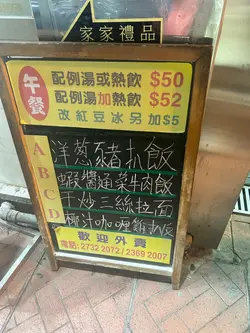 家家禮品
午餐
配例湯或熱飲 $50
配例湯加熱飲 $52
改紅豆冰另加$5
A 洋葱豬扒飯
B 蝦醬通菜牛肉飯
C 干炒三絲拉面
D 椰汁咖喱雞扒飯
歡迎外賣
電話: 2732 2072 / 2369 2007